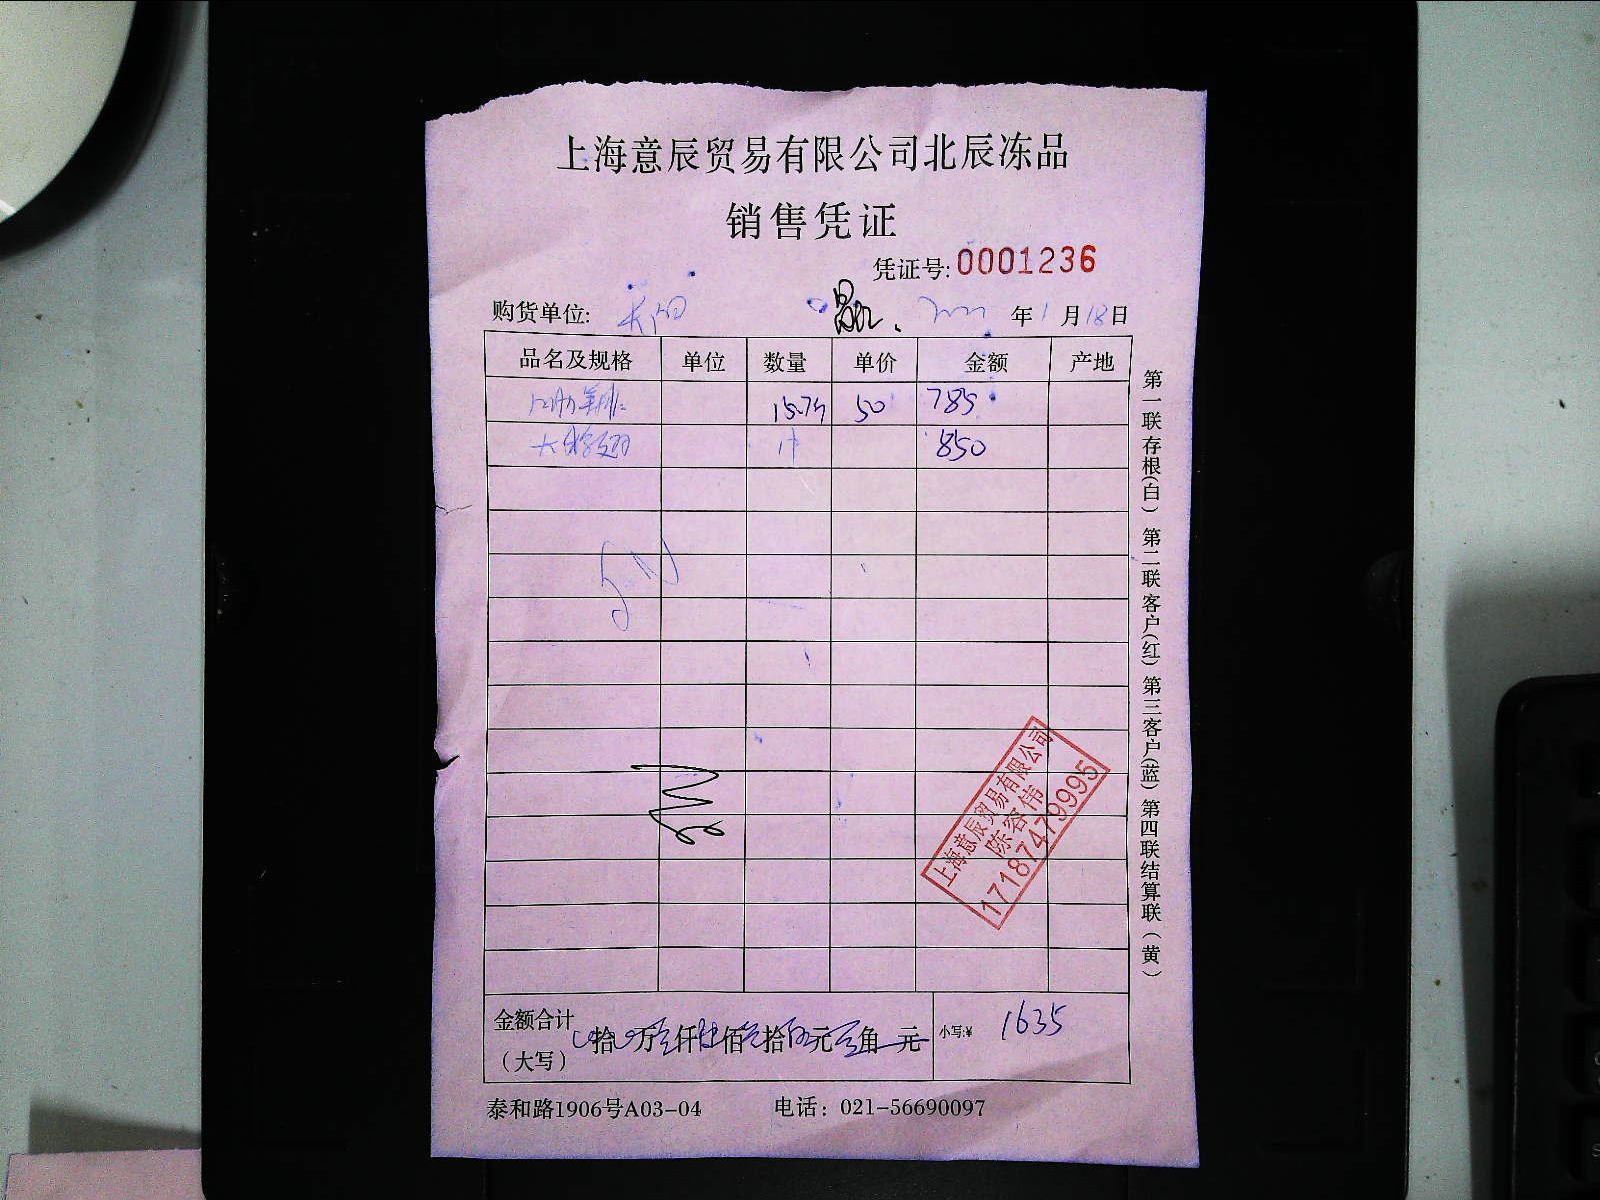 上海意辰贸易有限公司北辰冻品
销售凭证
凭证号:0001236
购货单位: 年1月18日
品名及规格 单位 数量 单价 金额 产地
50 785
大 1件 850
上海意辰贸易有限公司
陈容伟
17187479995
金额合计 拾 万 仟 佰 拾 元 角 元 小写:¥ 1635
（大写）
泰和路1906号A03-04 电话：021-56690097
第一联存根(白) 第二联客户(红) 第三客户(蓝) 第四联结算联(黄)